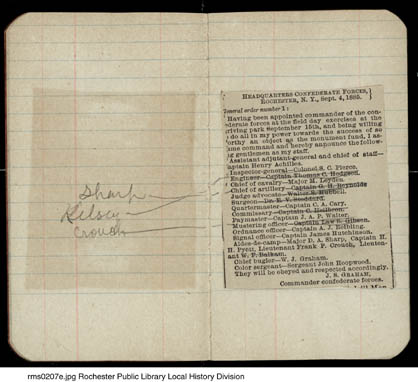 Sharp
Kelsey
Crouch
HEADQUARTERS CONFEDERATE FORCES,
ROCHESTER, N. Y., Sept. 4, 1885.
eneral order number 1:
Having been appointed commander of the con-
derate forces at the field day exercises at the
riving park September 15th, and being willing
do all in my power towards the success of so
orthy an object as the monument fund, I as-
ume command and hereby announce the follow-
g gentlemen as my staff.
Assistant adjutant-general and chief of staff—
aptain Henry Achilles.
Inspector-general—Colonel S. C. Pierce.
Engineer—Captain Thomas C. Hodgson.
Chief of cavalry—Major M. Leyden.
Chief of artillery—Captain G. H. Reynolds
Judge advocate—Walter S. Hubbell.
Surgeon—Dr. E. V. Stoddard.
Quartermaster—Captain C. A. Cary.
Commissary—Captain C.
Paymaster—Captain J. A. P. Walter.
Mustering officer—Captain
Ordnance officer—Captain A. J.
Signal officer—Captain James Hutchinson.
Aides-de-camp—Major D. A. Sharp, Captain H.
H. Pyott, Lieutenant Frank P. Crouch, Lieuten-
ant W. P.
Chief bugler—W. J. Graham.
Color sergeant—Sergeant John Hoopwood.
They will be obeyed and respected accordingly.
J. S. GRAHAM,
Commander confederate forces.
rms0207e.jpg Rochester Public Library Local History Division